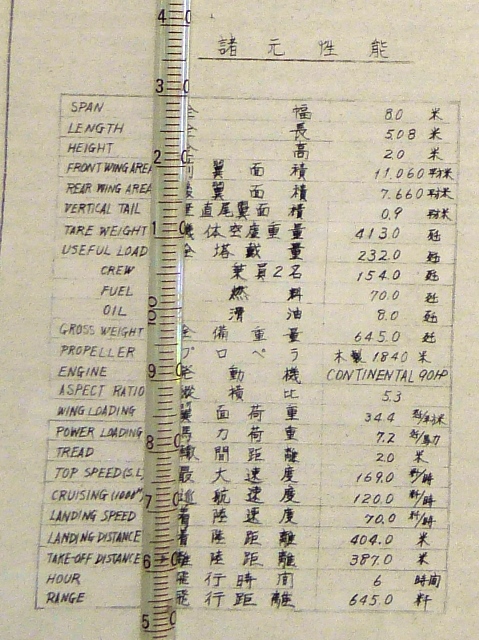 諸元性能
SPAN 全幅 8.0 米
LENGTH 全長 5.08 米
HEIGHT 全高 2.0 米
FRONT WING AREA 前翼面積 11.060 平米
REAR WING AREA 後翼面積 7.660 平米
VERTICAL TAIL 垂直尾翼面積 0.9 平米
TARE WEIGHT 機体空虚重量 413.0 瓩
USEFUL LOAD 全搭載量 232.0 瓩
CREW 乗員2名 154.0 瓩
FUEL 燃料 70.0 瓩
OIL 滑油 8.0 瓩
GROSS WEIGHT 全備重量 645.0 瓩
PROPELLER プロペラ 木製 1.840 米
ENGINE 発動機 CONTINENTAL 90HP
ASPECT RATIO 縦横比 5.3
WING LOADING 翼面荷重 34.4 瓩/平米
POWER LOADING 馬力荷重 7.2 瓩/馬力
TREAD 轍間距離 2.0 米
TOP SPEED (S.L) 最大速度 169.0 粁/時
CRUISING (1000M) 巡航速度 120.0 粁/時
LANDING SPEED 着陸速度 70.0 粁/時
LANDING DISTANCE 着陸距離 404.0 米
TAKE-OFF DISTANCE 離陸距離 387.0 米
HOUR 飛行時間 6 時間
RANGE 飛行距離 645.0 粁
4 0
3 0
2 0
1 0
0 0
9 0
8 0
7 0
6 0
5 0